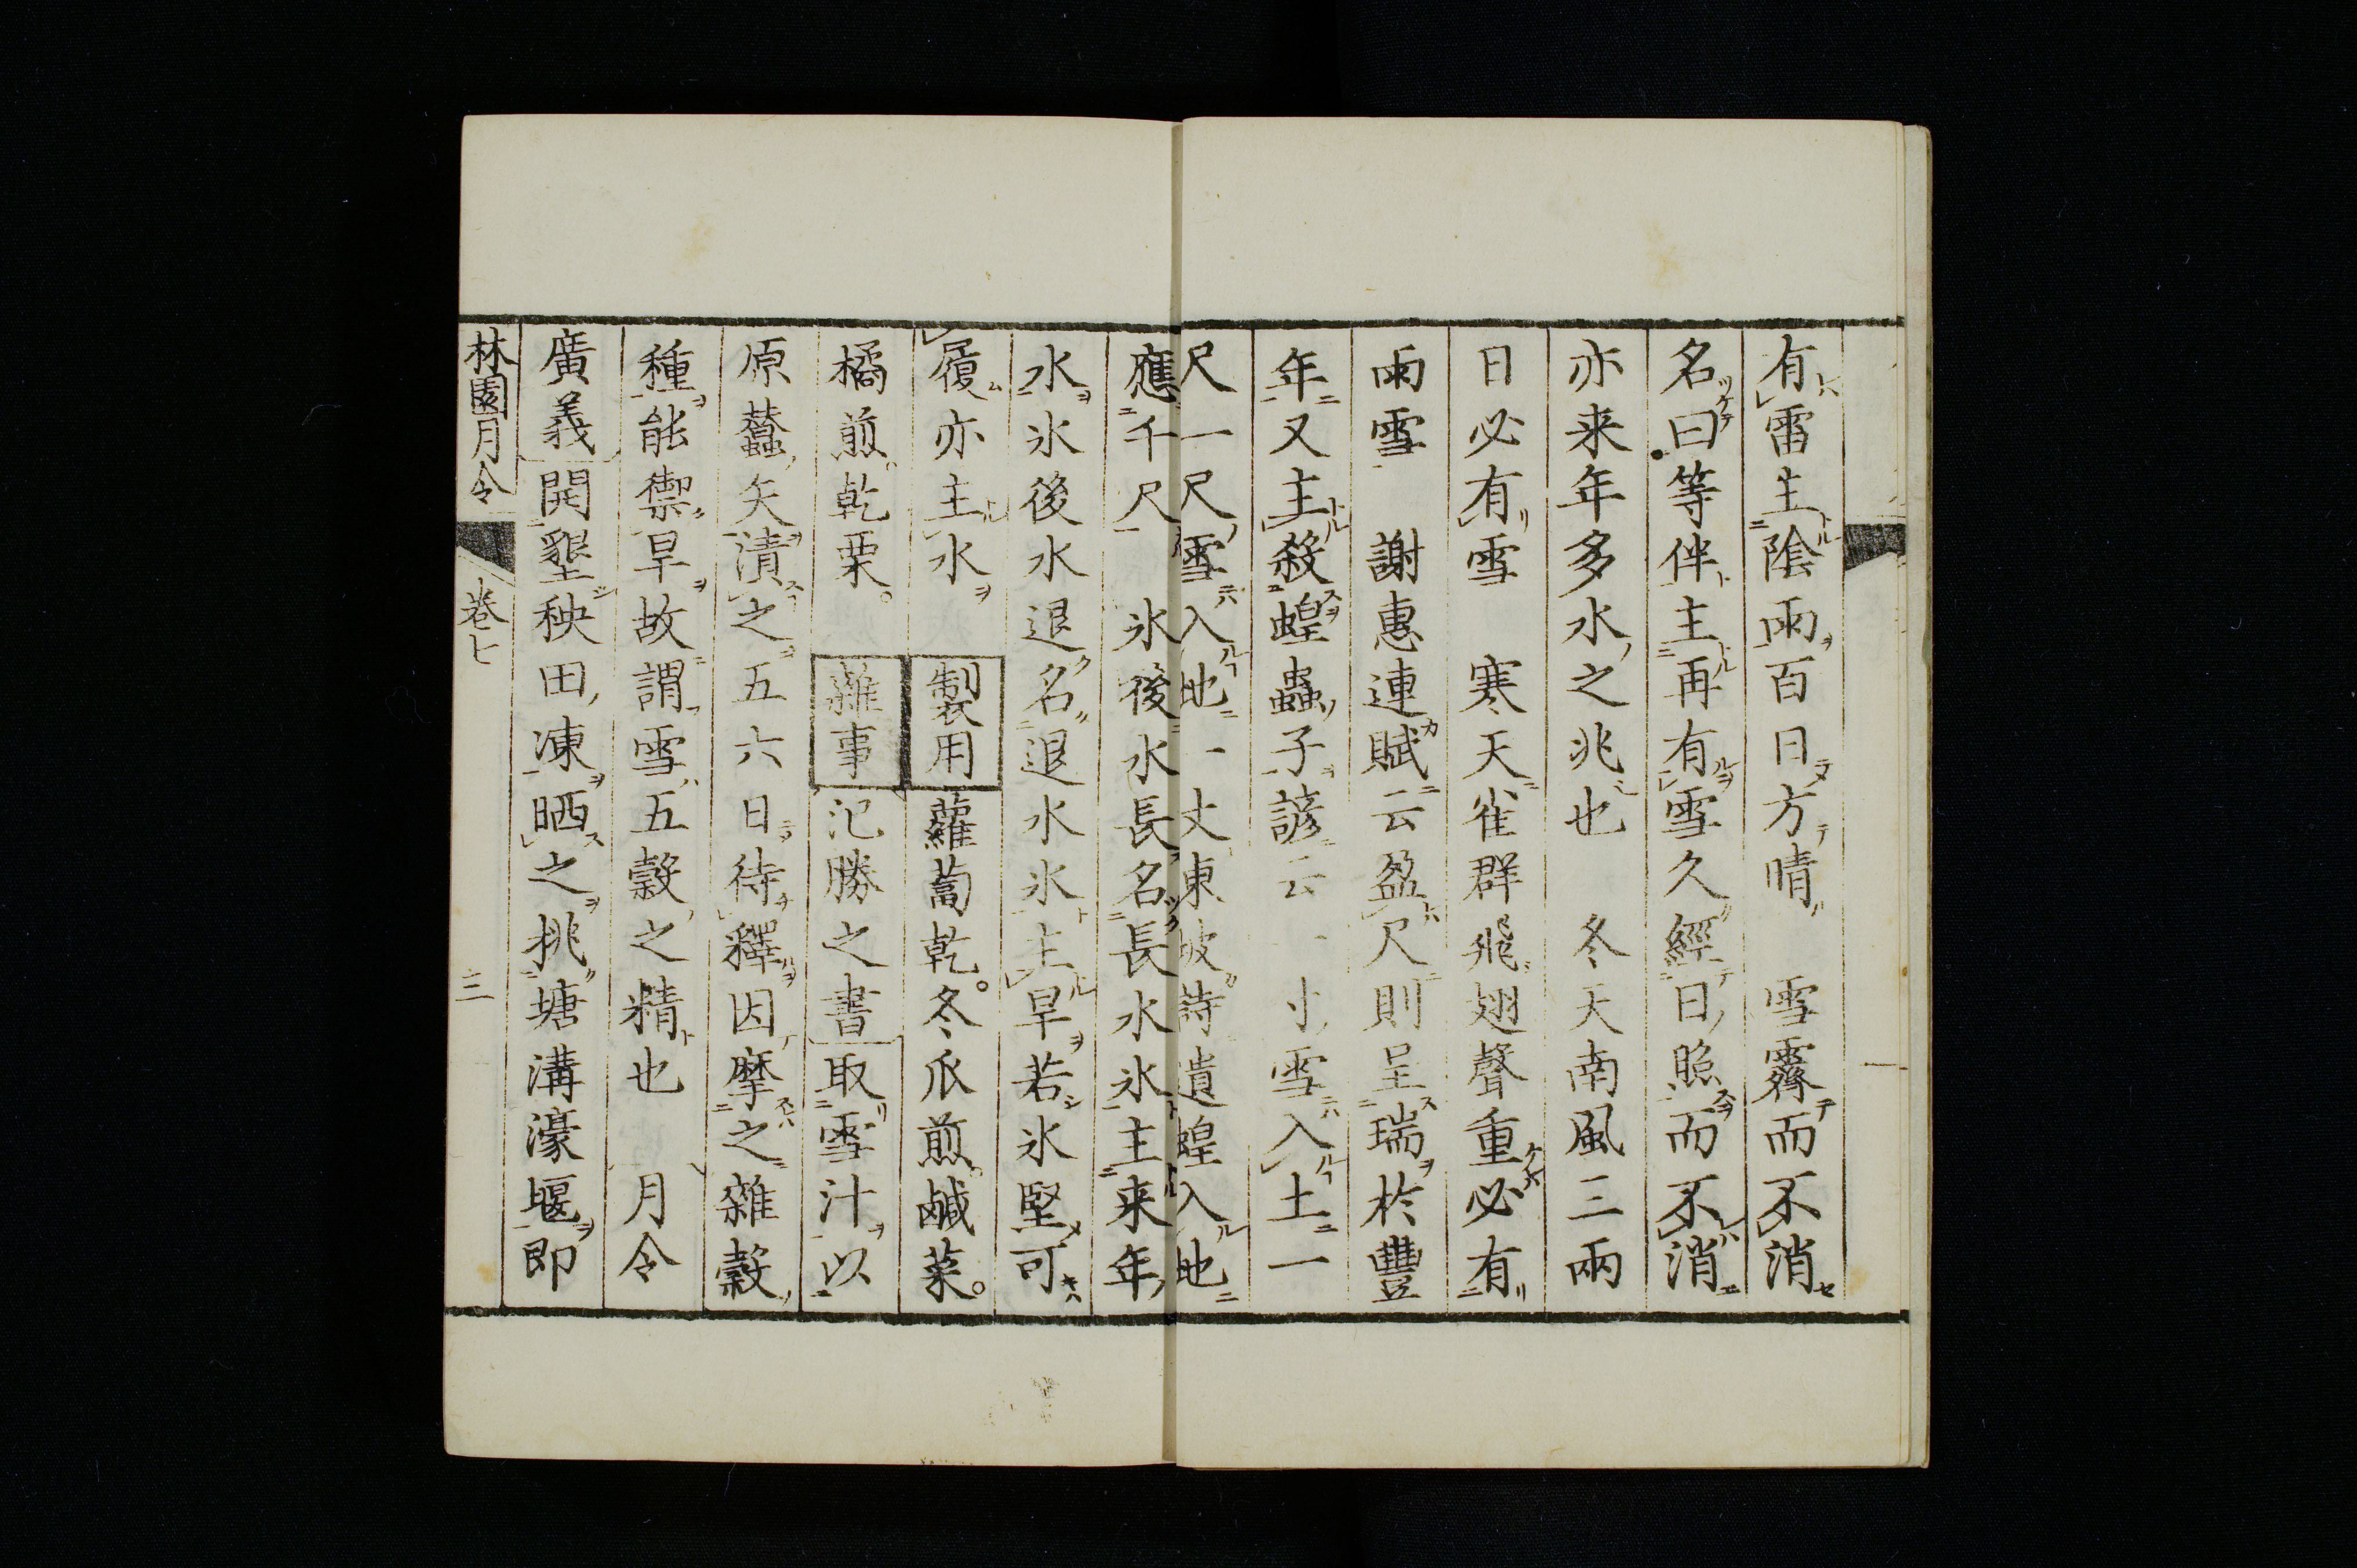 有雷主陰雨百日方晴　雪霽而不消
名曰等伴主再有雪久經日照而不消
亦来年多水之兆也　冬天南風三兩
日必有雪　寒天雀群飛翅聲重必有
雨雪　謝惠連賦云盈尺則呈瑞於豐
年又主殺蝗蟲子諺云一寸雪入土一
尺一尺雪入地一丈東坡詩遺蝗入地
應千尺　氷後水長名長水氷主来年
水氷後水退名退水氷主旱若氷堅可
履亦主水　製用蘿蔔乾。冬瓜煎。鹹菜。
橘煎。乾栗。　雜事氾勝之書取雪汁以
原蠶矢漬之五六日待釋因摩之雜穀
種能禦旱故謂雪五穀之精也　月令
廣義開墾秧田凍晒之挑塘溝濠堰即
林園月令　卷七　三